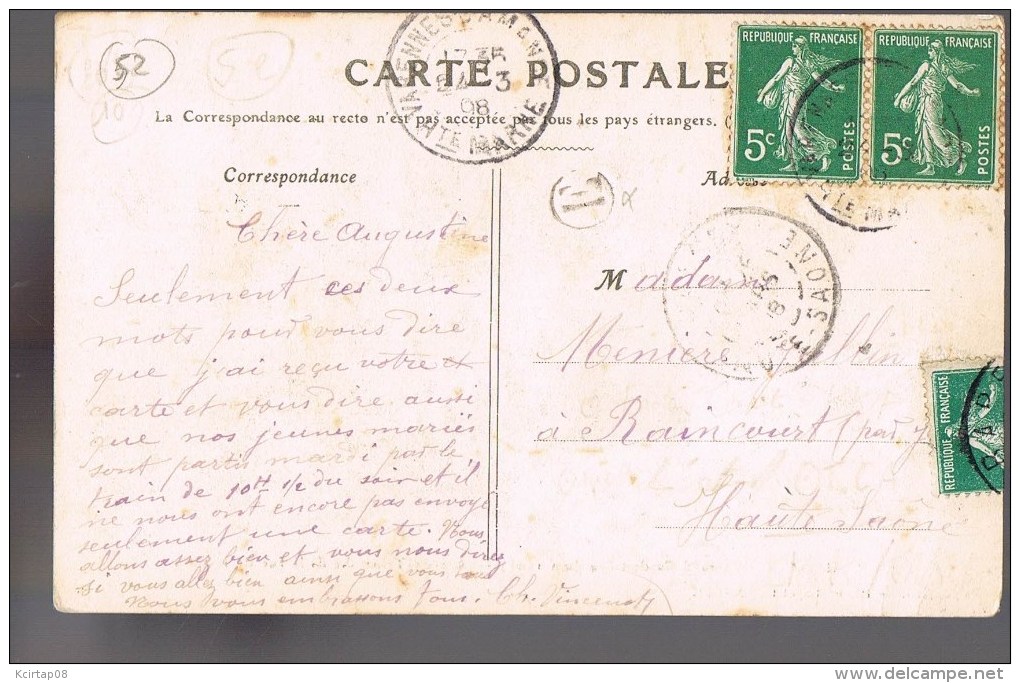 52
CARTE POSTALE
La Correspondance au recto n'est pas acceptée par tous les pays étrangers. (
VARENNES S AMANCE
17 35
24 3
08
HTE MARNE
REPUBLIQUE FRANÇAISE
5c
POSTES
REPUBLIQUE FRANÇAISE
5c
POSTES
Correspondance
Adresse
Chère Augustine
Seulement ces deux
mots pour vous dire
que j'ai reçu votre
carte et vous dire aussi
que nos jeunes mariés
sont partis mardi par le
train de 10H 1/2 du soir et il
ne nous ont encore pas envoyé
seulement une carte. Nous
allons assez bien et vous nous direz
si vous allez bien ainsi que vous
Nous vous embrassons tous. Ch. Vincenot
Madame
Meniere
à Raincourt (par
Haute Saône
SAONE
REPUBLIQUE FRANÇAISE
Kcirtap08
delcampe.net